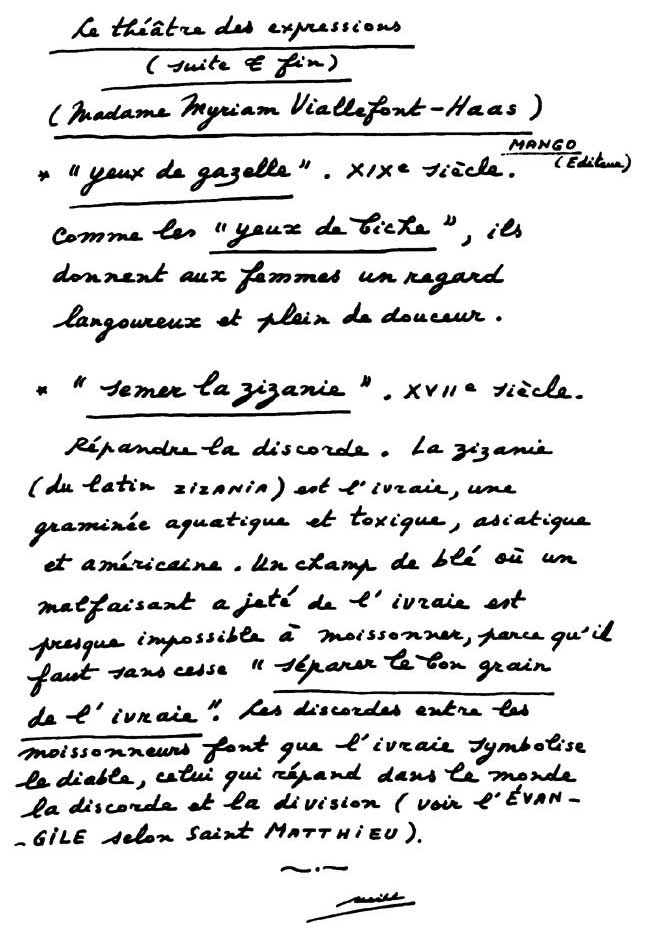 Le théâtre des expressions
(suite & fin)
(Madame Myriam Viallefont-Haas)
MANGO
(Editeur)
* "yeux de gazelle". XIXe siècle.
Comme les "yeux de biche", ils
donnent aux femmes un regard
langoureux et plein de douceur.
* "semer la zizanie". XVIIe siècle.
Répandre la discorde. La zizanie
(du latin ZIZANIA) est l'ivraie, une
graminée aquatique et toxique, asiatique
et américaine. Un champ de blé où un
malfaisant a jeté de l'ivraie est
presque impossible à moissonner, parce qu'il
faut sans cesse "séparer le bon grain
de l'ivraie". Les discordes entre les
moissonneurs font que l'ivraie symbolise
le diable, celui qui répand dans le monde
la discorde et la division (voir l'ÉVAN-
-GILE selon Saint MATTHIEU).